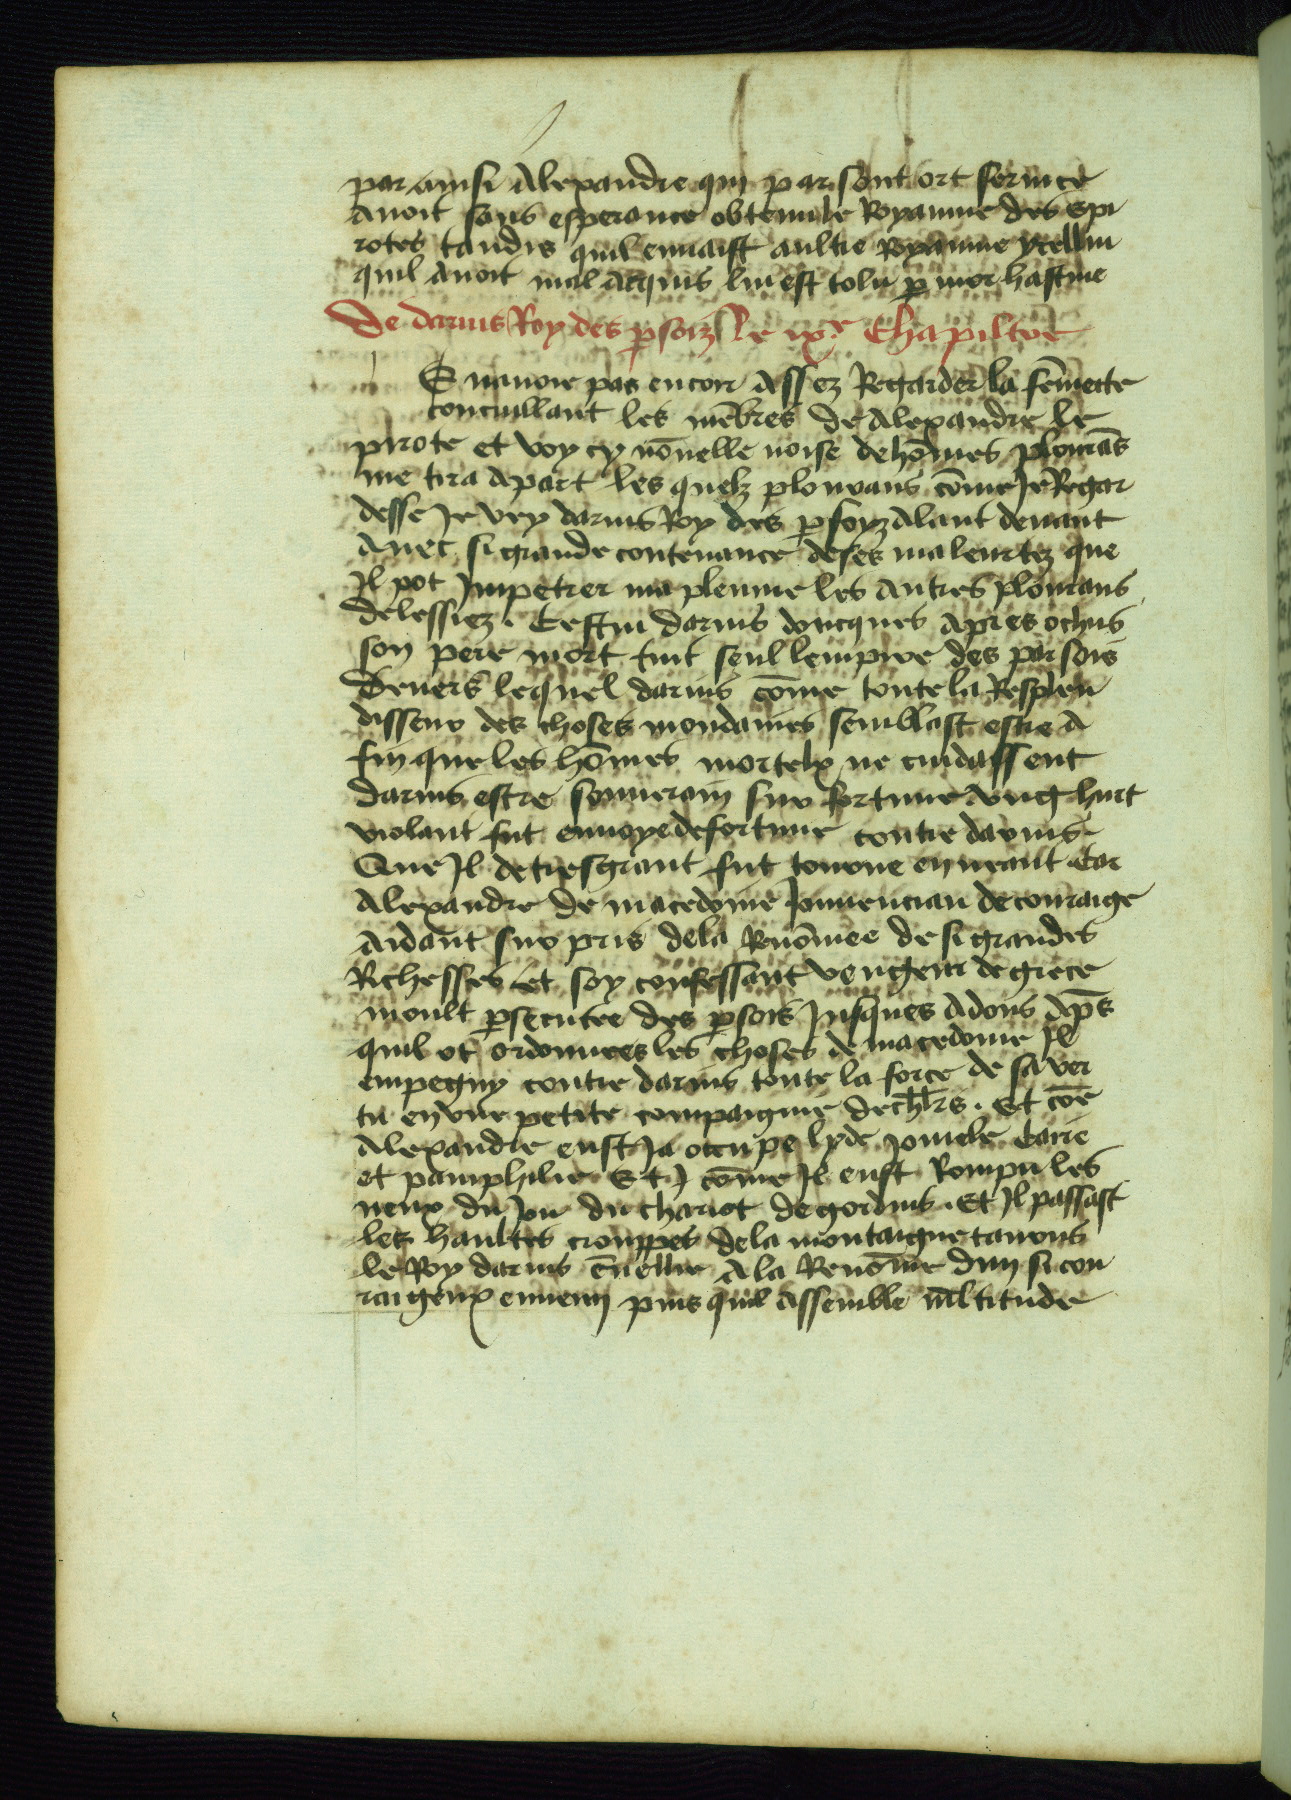 par ainsi Alexandre qui par son tort service
avoit sans esperance obtenu le Royaume des Epi
rotes tandis quil envaist aultre Royaume ycelluy
quil avoit mal acquis luy est tolu p mor hastive
De darius Roy des psoiz le ixe Chapiltre
E navoie pas encorr Assez Regarder la fēmette
concuillant les mēbres de Alexandre le
pirote et voycy nōuelle noise de hōmes plourās
me tira apart les quelz plourans cōme Je Regar
desse Je vey darius Roy des psoyz Alant devant
Avec si grande contenance de ses maleurtez que
Il pot Impetrer ma plenme les Autres plourans
delessiez. Cestui darius doncques apres ochus
son pere mort tint seul lempire des parsois
Devers lequel darius cōme toute la Resplen
disseur des choses mondaines semblast estre A
fin que les hōmes mortelx ne cuidassent
darius estre souverain sur fortune ung hurt
violant fut envoye de fortune contre darius.
Que Il de tresgrant fut tourne en neant Car
Alexandre de macedoine Jouvencian de couraige
Ardant sur pris dela Renōmee de si grandes
Richesses et soy confessant vengeur de grece
moult psecutee des psois Jusques adons Aps
quil ot ordonnees les choses de macedoine Il
empegny contre darius toute la force de sa ver
tu en une petite compaignie dechlrs. Et cōe
Alexandre eust Ja occupe lyde Jonie le Carie
et pamphilie Et cōme Il eust Rompu les
neux du Jou du chariot de gordius. Et Il passast
les haultes crouppes dela montaigne taurus
le Roy darius Esuellie A la Renōmee dun si cou
raigeux ennemy puis quil assemble mltitude